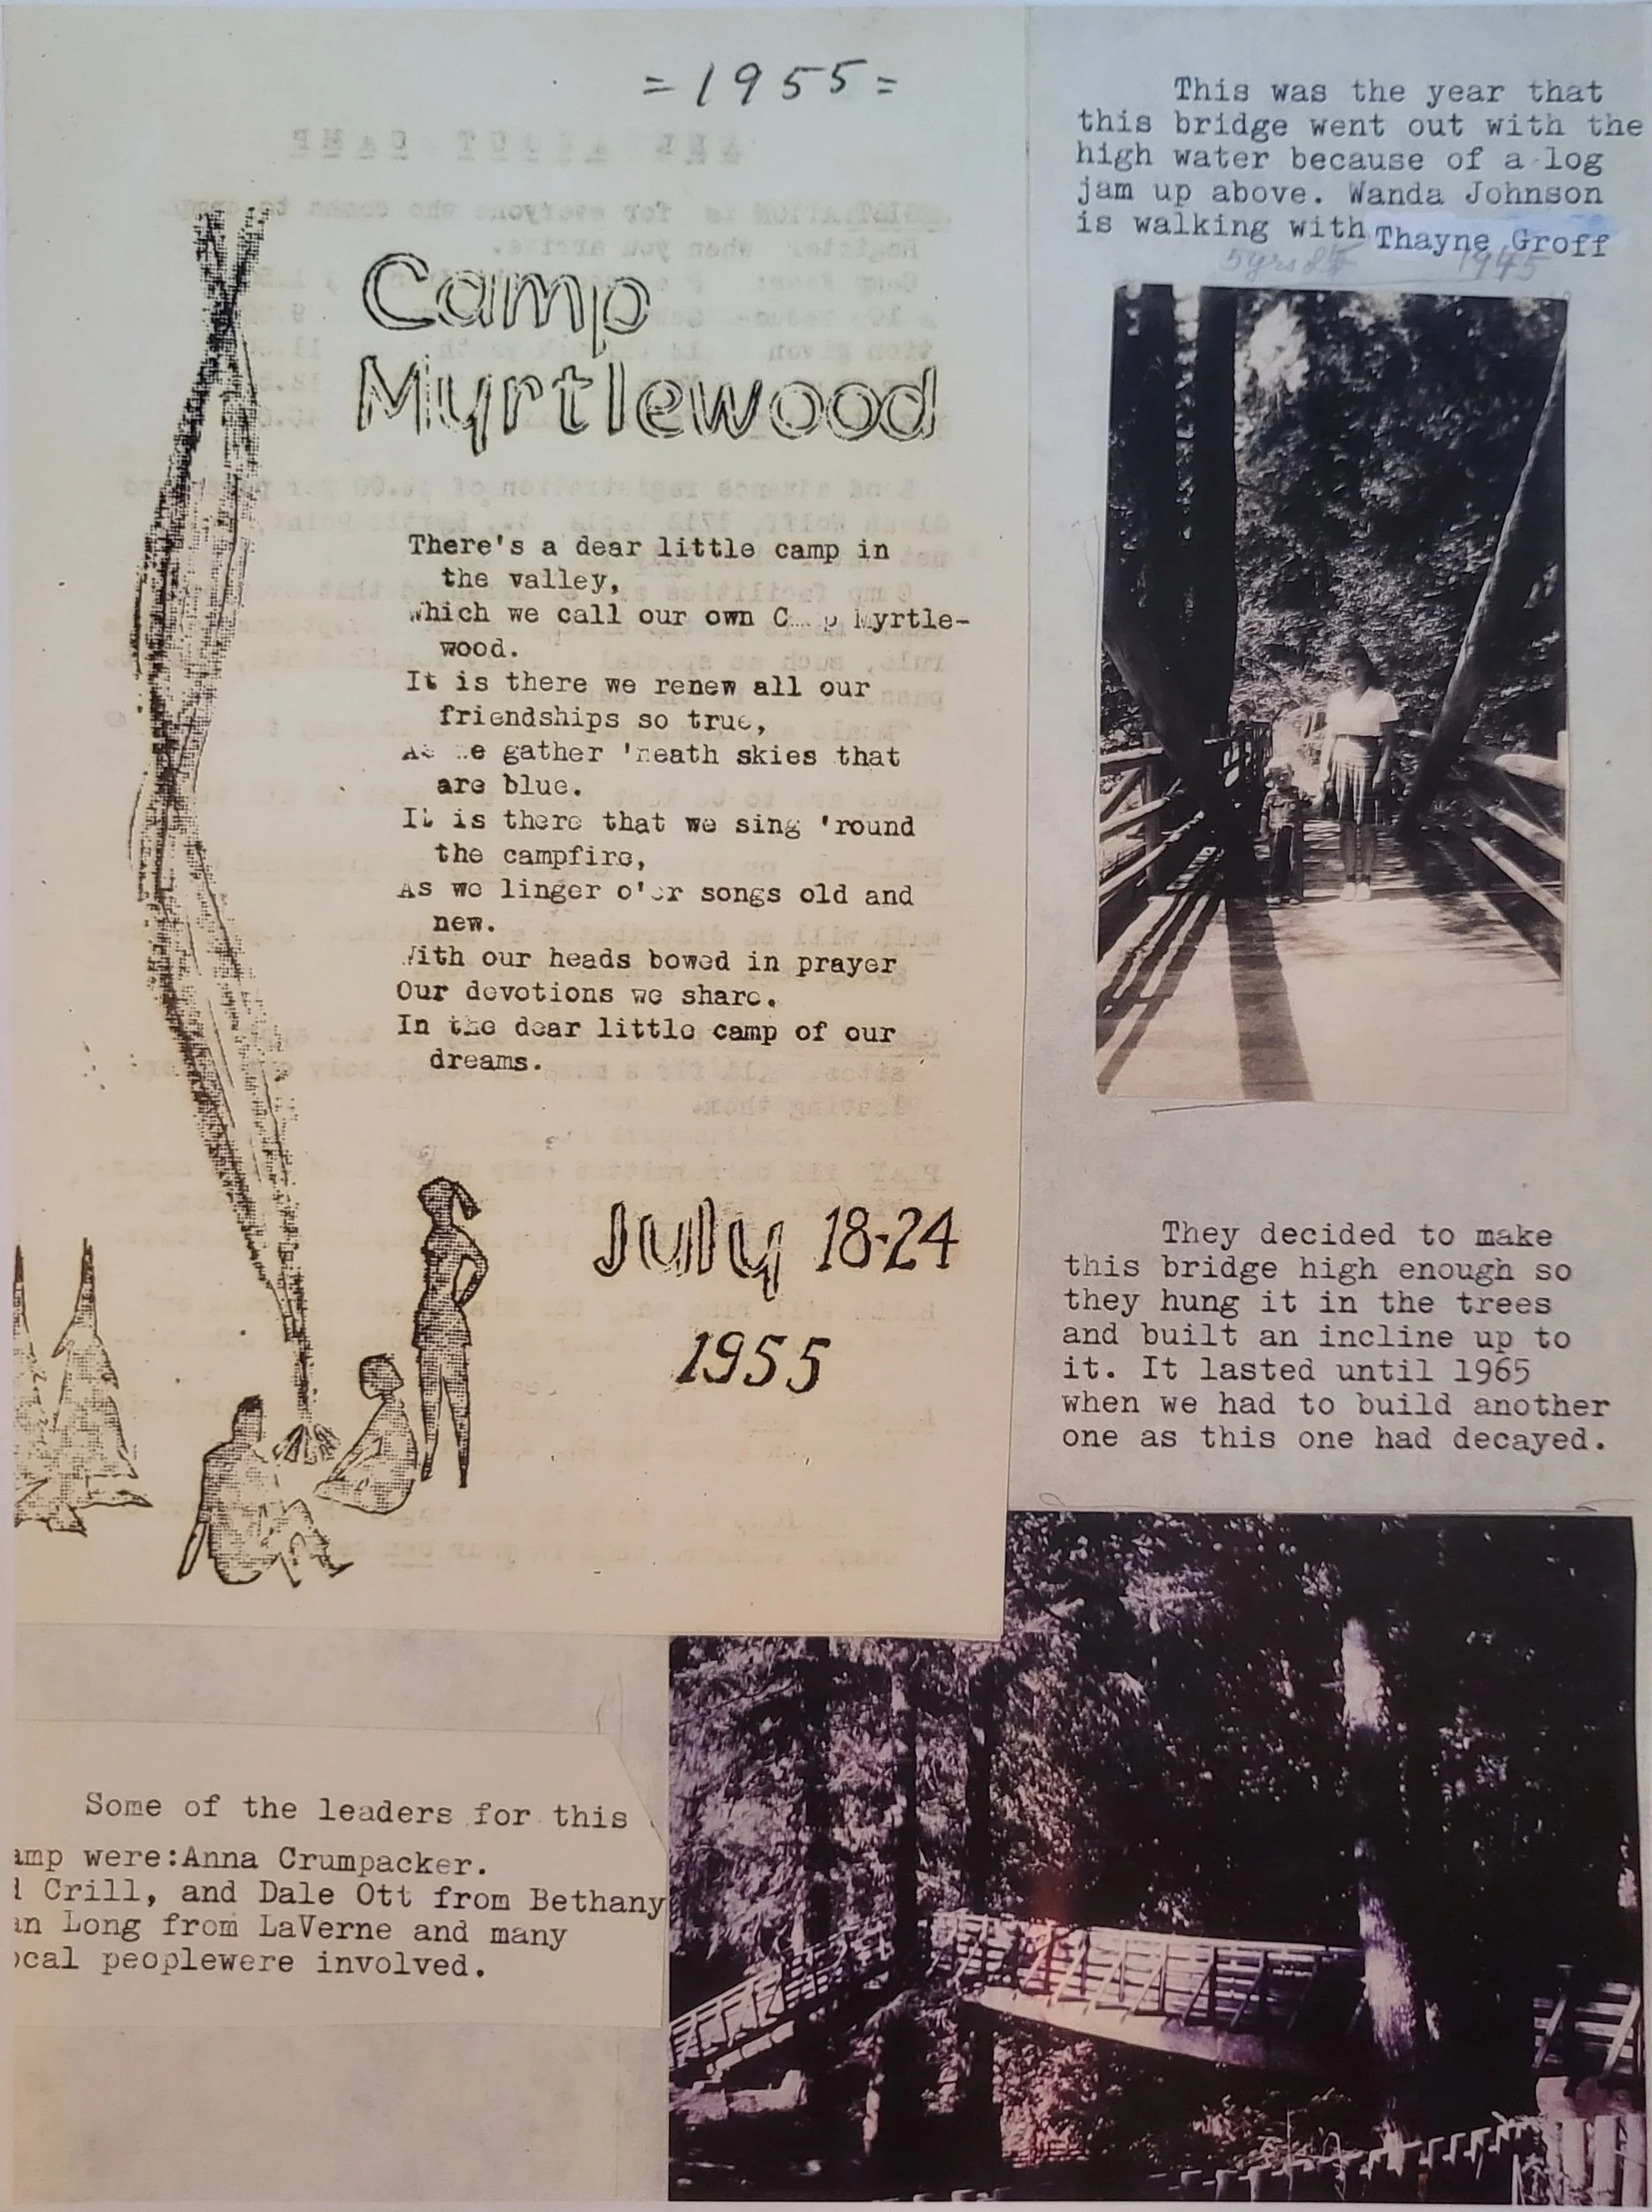 =1955=
Camp
Myrtlewood
There's a dear little camp in
the valley,
Which we call our own Myrtle-
wood.
It is there we renew all our
friendships so true,
As we gather 'neath skies that
are blue.
It is there that we sing 'round
the campfire,
As we linger o'er songs old and
new.
With our heads bowed in prayer
Our devotions we share.
In the dear little camp of our
dreams.
July 18-24
1955
Some of the leaders for this
amp were:Anna Crumpacker.
Crill, and Dale Ott from Bethany
an Long from LaVerne and many
ocal peoplewere involved.
This was the year that
this bridge went out with the
high water because of a log
jam up above. Wanda Johnson
is walking with Thayne Groff
1945
They decided to make
this bridge high enough so
they hung it in the trees
and built an incline up to
it. It lasted until 1965
when we had to build another
one as this one had decayed.